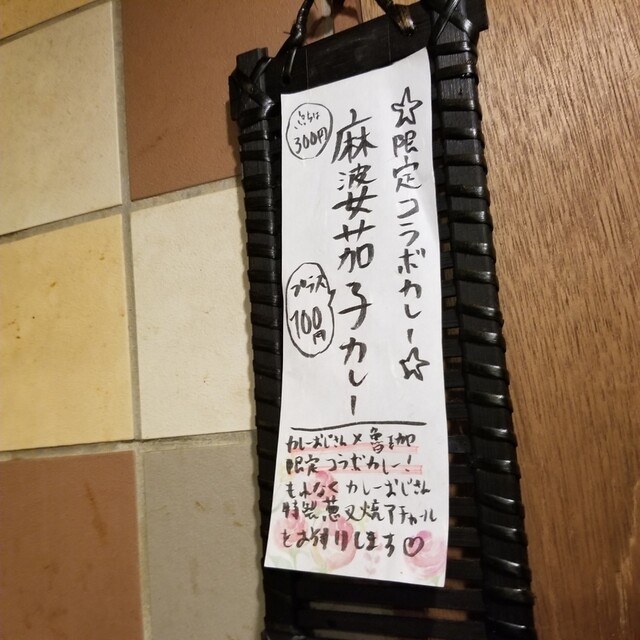 ☆限定コラボカレー☆
麻婆茄子カレー
300円
プラス
100円
カレーおじさん×魯珈
限定コラボカレー!
もれなくカレーおじさん
特製葱叉焼アチャール
とお付けします♡